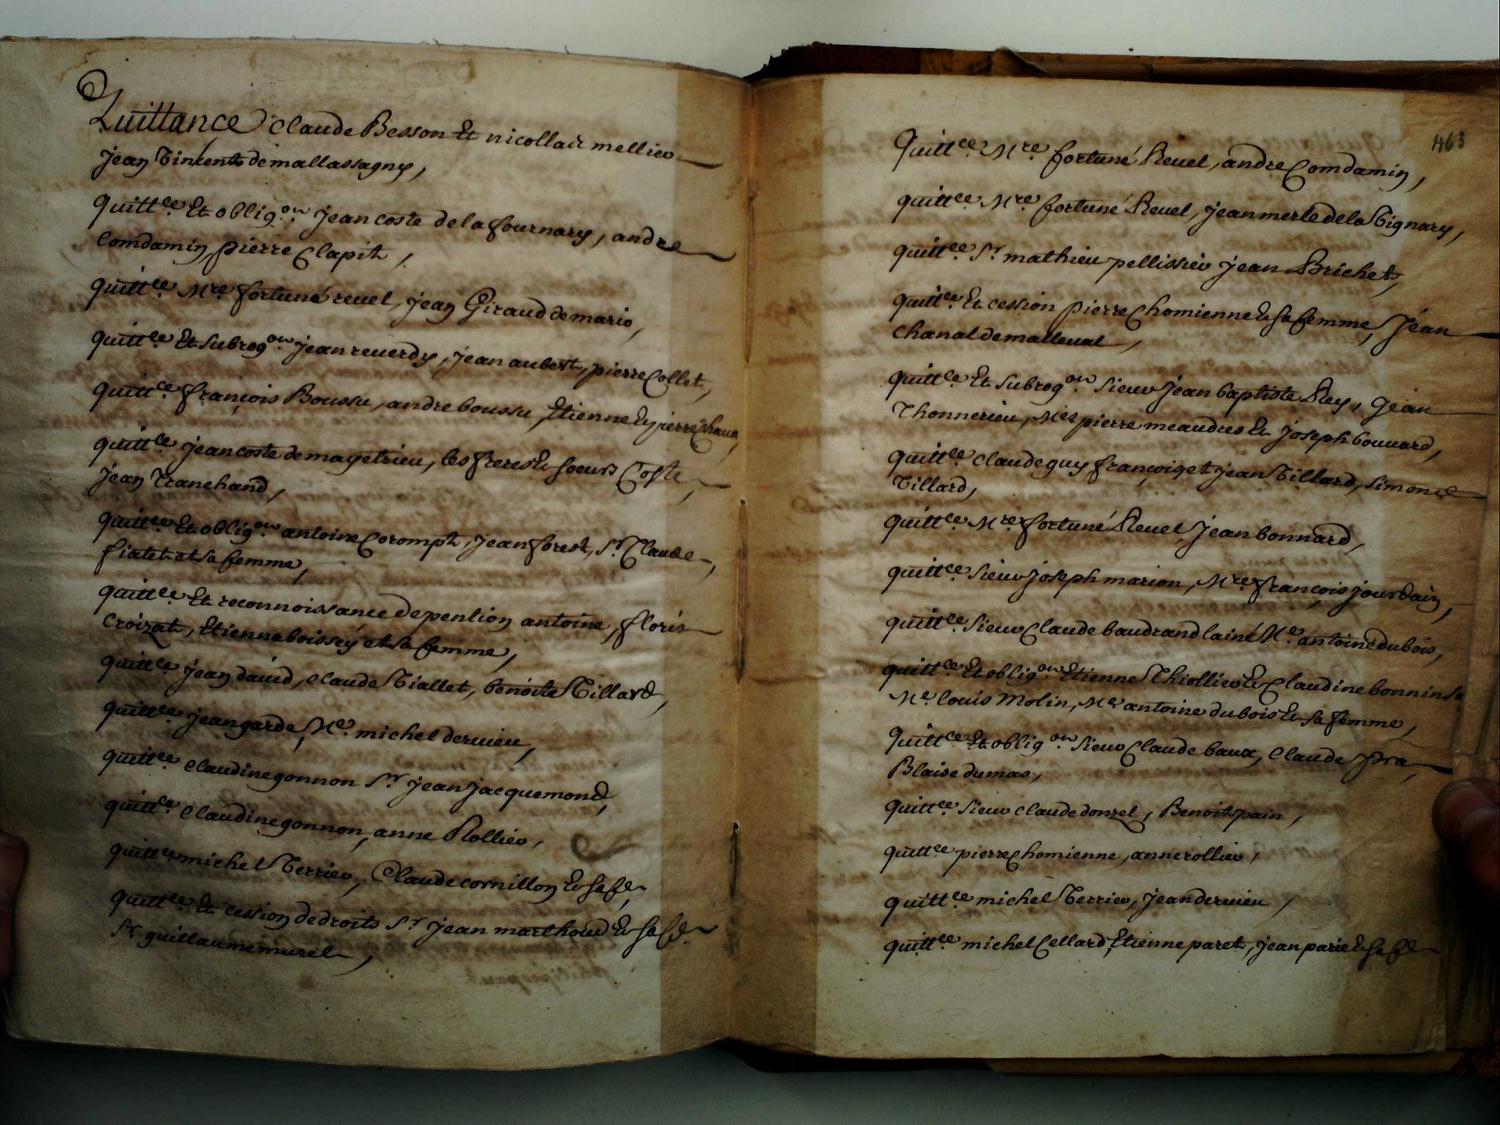 Quittance Claude Besson Et nicollas mellier
jean Vinsent de mallassagny,
quitt.ce Et oblig.on jean coste de la fournary, andre
Comdamin, pierre Clapit,
quitt.ce Mre fortuné revel, jean Giraud de mario,
quitt.ce Et subrog.on jean reverdy, jean aubert, pierre Collet,
quitt.ce françois Boussu, andre boussu, Etienne Et pierre Chava,
quitt.ce jean coste de magetrieu, les freres Et soeurs Coste,
jean Tranchand,
quitt.ce Et oblig.on antoine Corompt, jean forest, Sr Claude
fiatet et sa femme,
quitt.ce Et reconnoissance de pention antoine, floris
Croizat, Etienne boissey et sa femme,
quitt.ce jean david, Claude Viallet, benoite Villard,
quitt.ce jean garde, Me michel dervieu,
quitt.ce Claudine gonnon Sr jean jacquemond,
quitt.ce Claudine gonnon, anne Rollier,
quitt.ce michel Verrier, Claude cornillon Et sa fe,
quitt.ce Et cession de droits Sr jean marthoud Et sa fe.
Sr guillaume murel,
463
Quitt.ce Mre fortuné Revel, andre Comdamin,
quitt.ce Mre fortuné Revel, jean merle de la Vignary,
quitt.ce Sr mathieu pellissier jean Brichet,
quitt.ce Et cession pierre Chomienne Et sa femme, Jean
Chanal de malleval,
quitt.ce Et subrog.on Sieur jean baptiste Rey, jean
Thonnerieu, Mes pierre meaudres Et joseph bouvard,
quitt.ce Claude guy françois et jean Villard, simonde
Villard,
quitt.ce Mre fortuné Revel, jean bonnard,
quitt.ce Sieur joseph marion, Mre françois jourdain,
quitt.ce Sieur Claude baudrand lainé Me antoine dubois,
quitt.ce Et oblig.on Etienne Thiollier Et Claudine bonnin sa
Me louis Molin, Me antoine dubois Et sa femme,
quitt.ce Et oblig.on Sieur Claude baux, Claude pra,
Blaise dumas,
quitt.ce Sieur Claude donzel, Benoit pain,
quitt.ce pierre Chomienne, anne rollier,
quitt.ce michel Verrier, jean dervieu,
quitt.ce michel Cellard, Etienne paret, jean parie Et sa fe